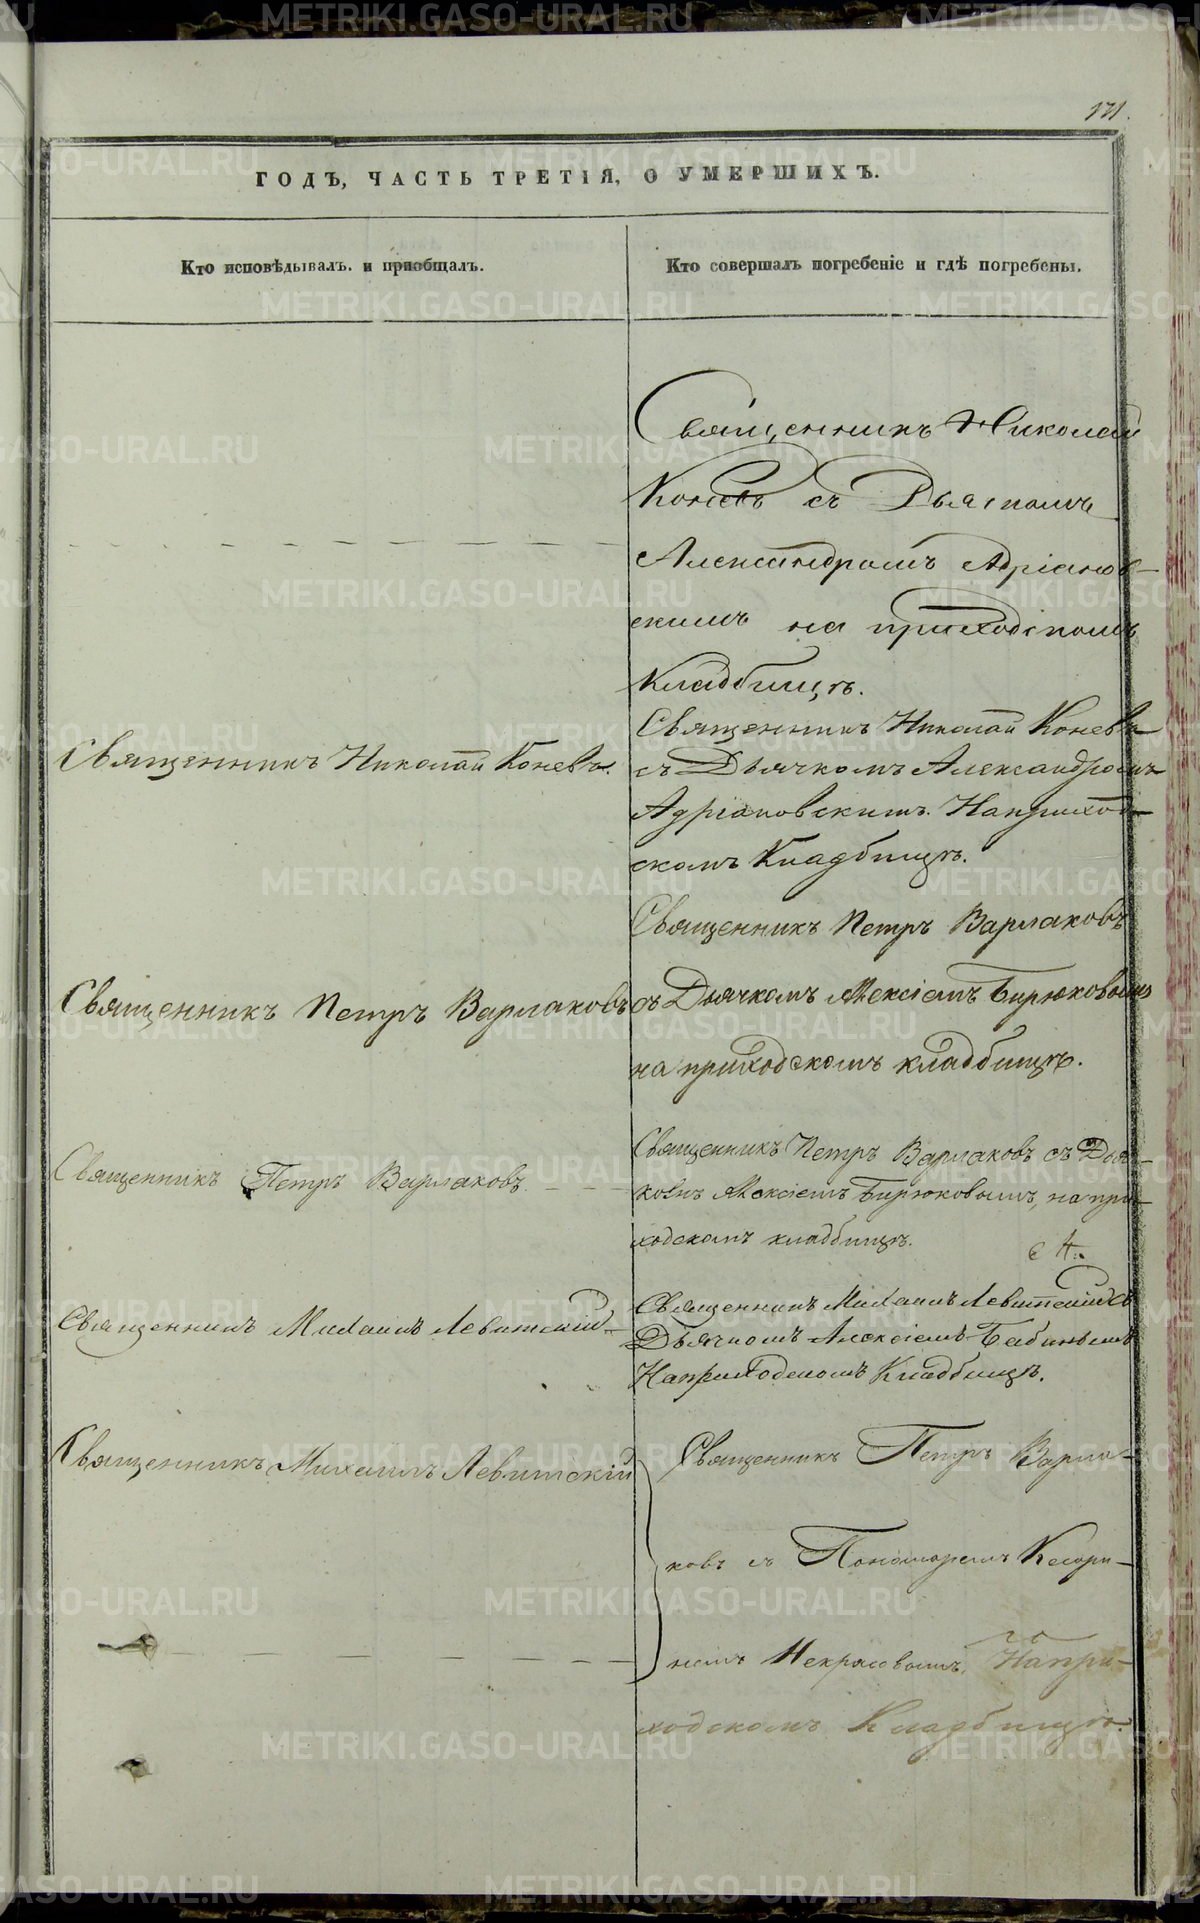 171.
ГОДЪ, ЧАСТЬ ТРЕТІЯ, О УМЕРШИХЪ.
Кто исповѣдывалъ. и приобщалъ.
Кто совершалъ погребеніе и гдѣ погребены.
Священникъ Николай
Коневъ съ Дьячкомъ
Александромъ Адріанов-
скимъ на приходскомъ
Кладбищѣ.
Священникъ Николай Коневъ.
Священникъ Николай Коневъ
съ Дьячкомъ Александромъ
Адріановскимъ. На приход-
скомъ Кладбищѣ.
Священникъ Петръ Варлаковъ
Священникъ Петръ Варлаковъ
съ Дьячкомъ Алексіемъ Бирюковымъ
на приходскомъ кладбищѣ.
Священникъ Петръ Варлаковъ
Священникъ Петръ Варлаковъ съ Дья-
комъ Алексіемъ Бирюковымъ, на при-
ходскомъ кладбищѣ.
Священникъ Михаилъ Левитскій
Священникъ Михаилъ Левитскій съ
Дьячкомъ Алексіемъ Бабинымъ
На приходскомъ Кладбищѣ.
Священникъ Михаилъ Левитскій
Священникъ Петръ Варла-
ковъ съ Пономаремъ Кесари-
немъ Некрасовымъ. На при-
ходскомъ Кладбищѣ.
METRIKI.GASO-URAL.RU